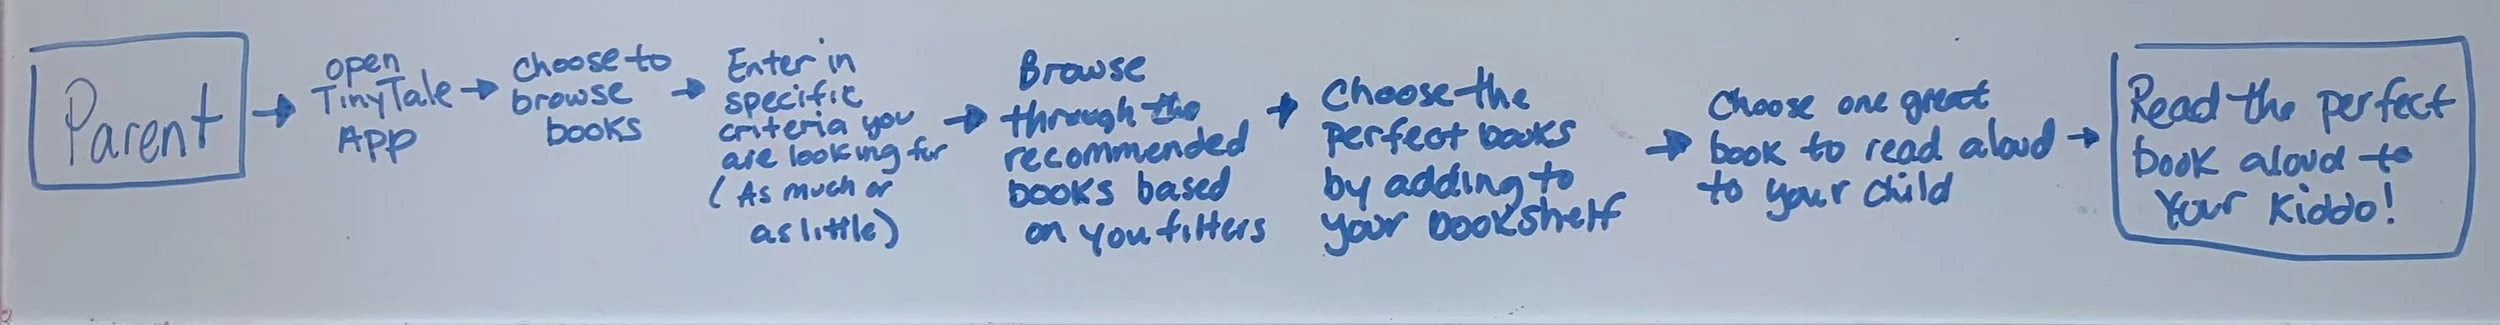 Parent
open
TinyTale
App
choose to
browse
books
Enter in
specific
criteria you
are looking for
(As much or
as little)
Browse
through the
recommended
books based
on you filters
Choose the
perfect books
by adding to
your bookshelf
Choose one great
book to read aloud
to your child
Read the perfect
book aloud to
Your Kiddo!